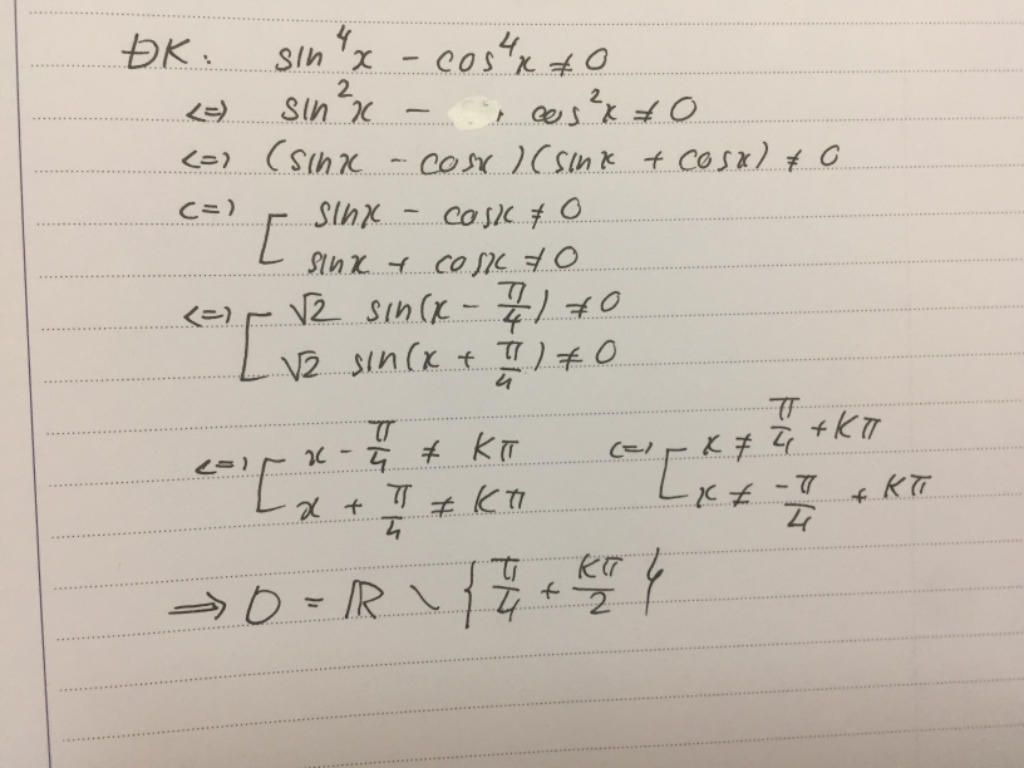 ĐK: sin⁴x - cos⁴x ≠ 0
<=> sin²x - cos²x ≠ 0
<=> (sinx - cosx)(sinx + cosx) ≠ 0
<=> [ sinx - cosx ≠ 0
sinx + cosx ≠ 0
<=> [ √2 sin(x - π/4) ≠ 0
√2 sin(x + π/4) ≠ 0
<=> [ x - π/4 ≠ Kπ <=> [ x ≠ π/4 + Kπ
x + π/4 ≠ Kπ x ≠ -π/4 + Kπ
=> D = ℝ \ { π/4 + Kπ/2 }